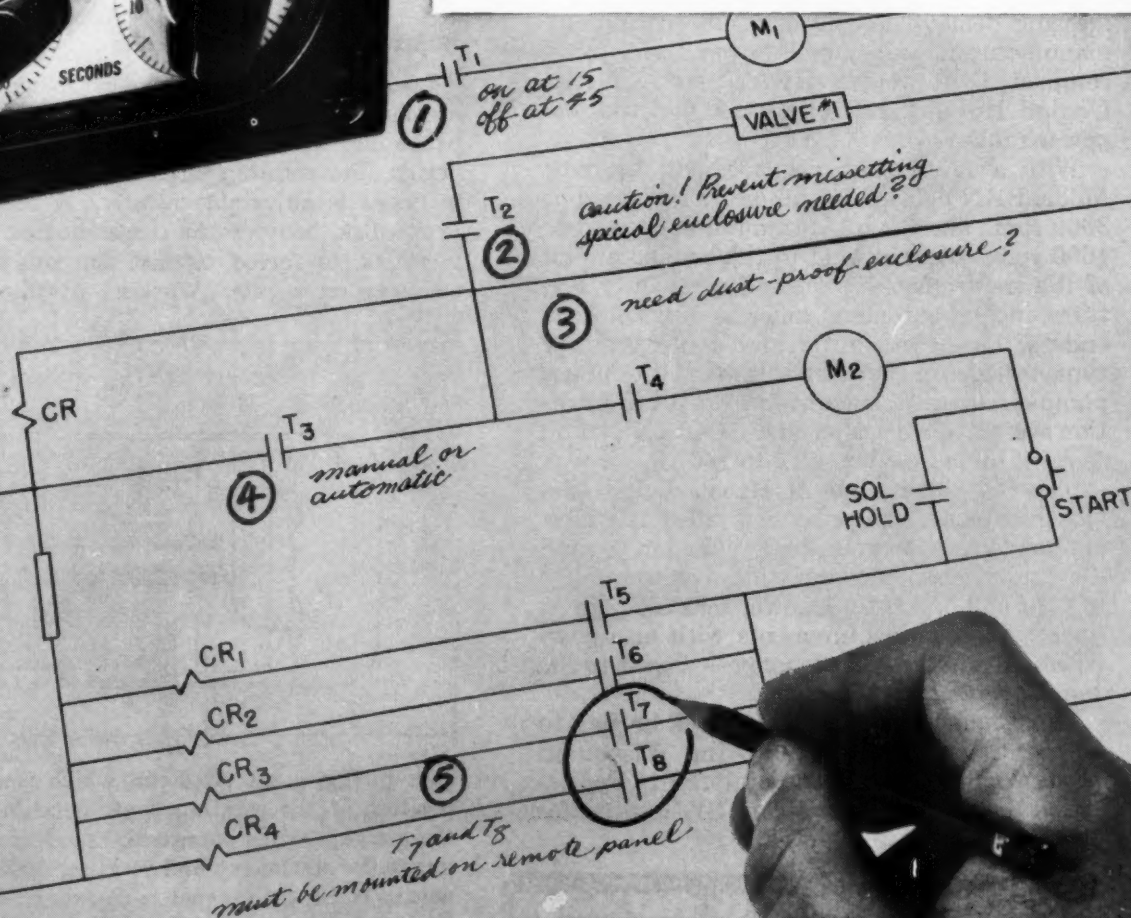 10
SECONDS
M1
T1
1
on at 15
off at 45
VALVE #1
T2
2
caution! Prevent missetting
special enclosure needed?
3
need dust-proof enclosure?
CR
T3
4
manual or
automatic
T4
M2
SOL
HOLD
START
T5
T6
T7
T8
CR1
CR2
CR3
CR4
5
T7 and T8
must be mounted on remote panel